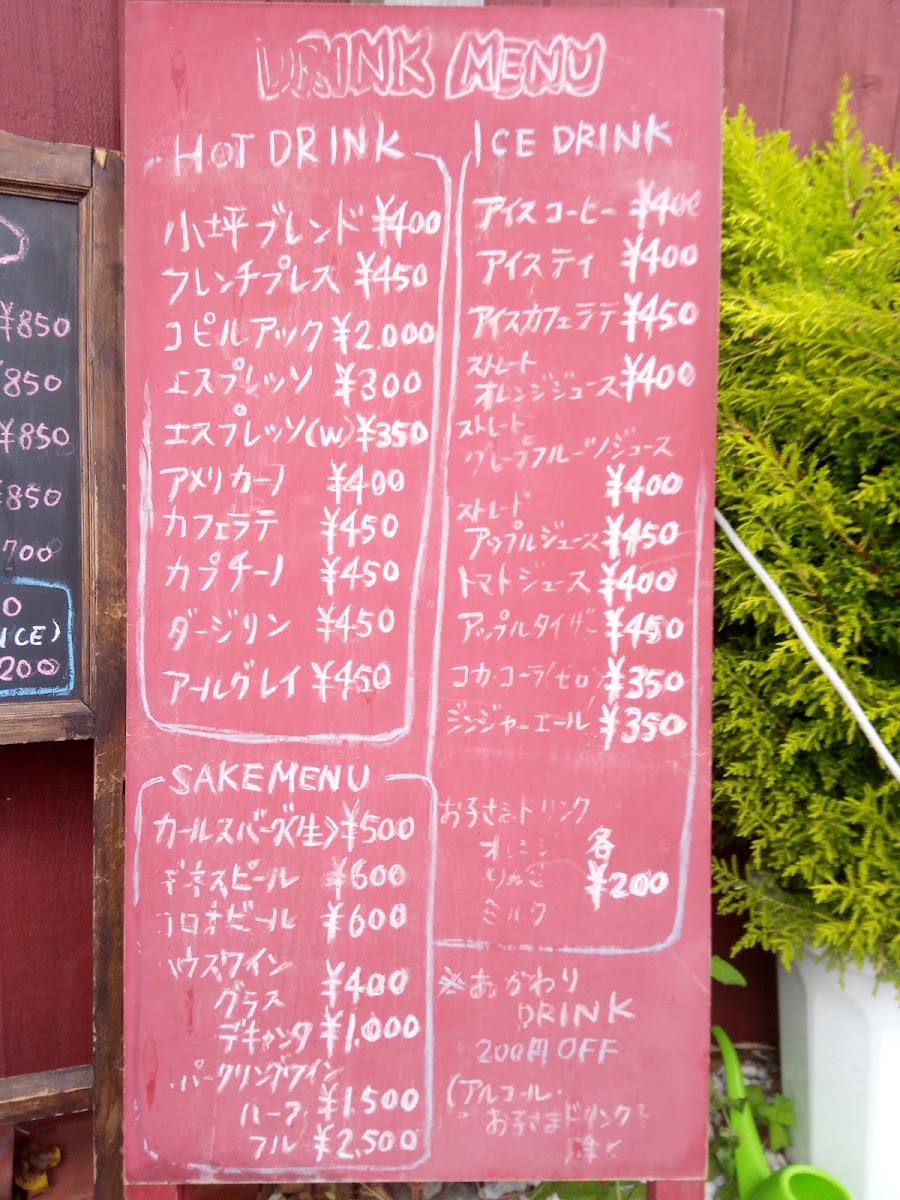 DRINK MENU
HOT DRINK
小坪ブレンド ¥400
フレンチプレス ¥450
コピルアック ¥2.000
エスプレッソ ¥300
エスプレッソ(W) ¥350
アメリカーノ ¥400
カフェラテ ¥450
カプチーノ ¥450
ダージリン ¥450
アールグレイ ¥450
ICE DRINK
アイスコーヒー ¥400
アイスティ ¥400
アイスカフェラテ ¥450
ストレート
オレンジジュース ¥400
ストレート
グレープフルーツジュース
¥400
ストレート
アップルジュース ¥450
トマトジュース ¥400
アップルタイザー ¥450
コカ・コーラ(ゼロ) ¥350
ジンジャーエール ¥350
お子さまドリンク
オレンジ 各
りんご ¥200
ミルク
SAKE MENU
カールスバーグ(生) ¥500
ギネスビール ¥600
コロナビール ¥600
ハウスワイン
グラス ¥400
デキャンタ ¥1.000
スパークリングワイン
ハーフ ¥1.500
フル ¥2,500
※おかわり
DRINK
200円 OFF
(アルコール・
お子さまドリンク
除く
¥850
¥850
¥850
¥850
700
0
ICE)
200